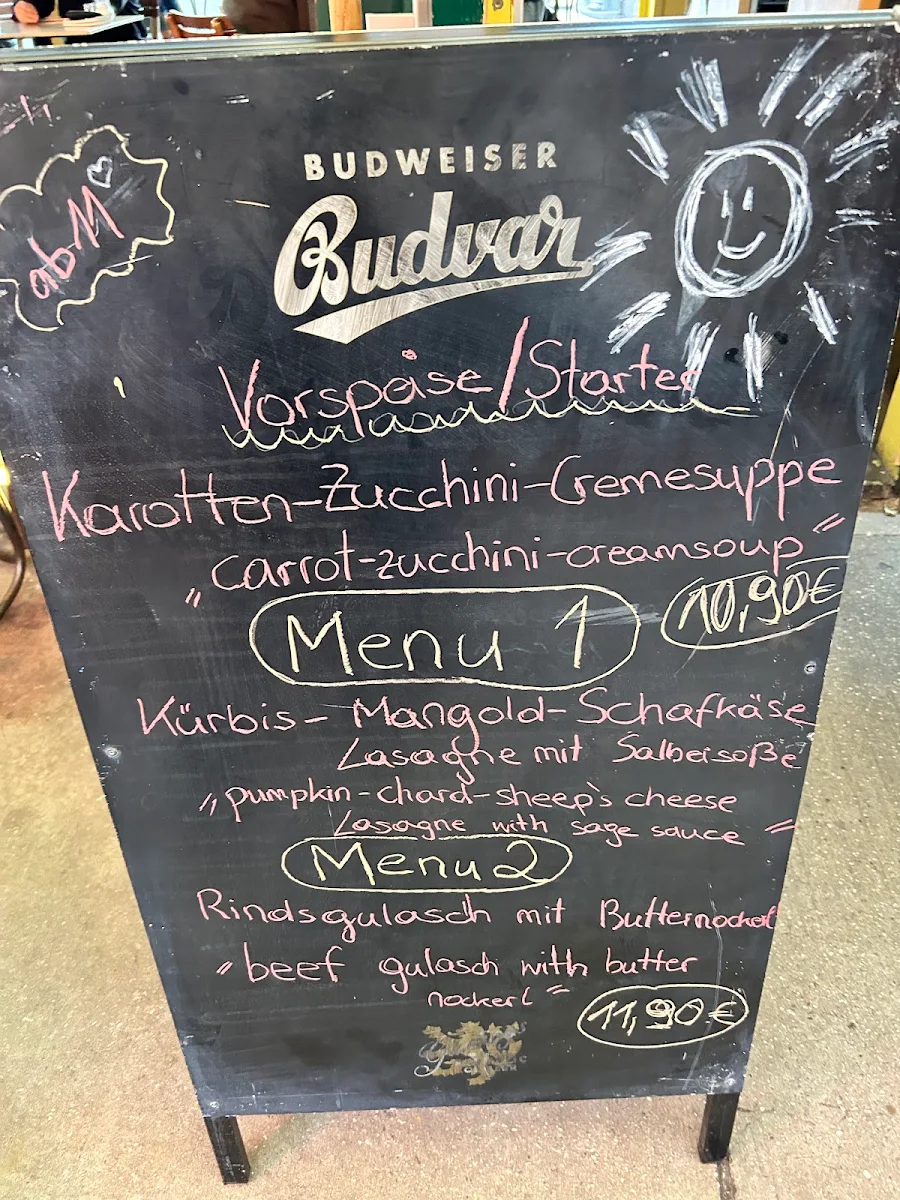 ab 11
BUDWEISER
Budvar
Vorspeise/Starter
Karotten-Zucchini-Cremesuppe
"carrot-zucchini-creamsoup"
Menu 1 10,90€
Kürbis-Mangold-Schafkäse
Lasagne mit Salbeisoße
"pumpkin-chard-sheep's cheese
Lasagne with sage sauce"
Menu 2
Rindsgulasch mit Butternockerl
"beef gulasch with butter
nockerl"
11,90€